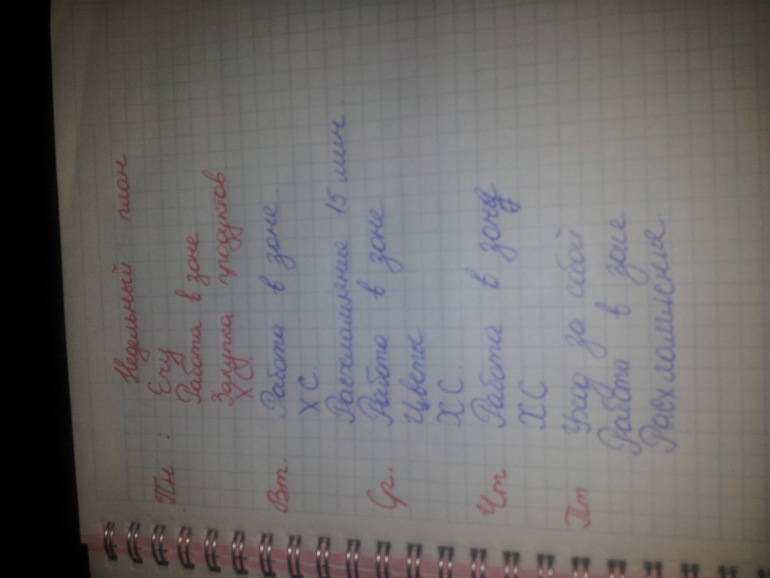 Недельный план
Пн : Ечу
Работа в зоне
Закупка продуктов
ХС.
Вт. Работа в зоне
ХС.
Расхламление 15 мин.
Ср. Работа в зоне
Цветы
ХС.
Чт Работа в зоне
ХС
Пт Уход за собой
Работа в зоне
Расхламление